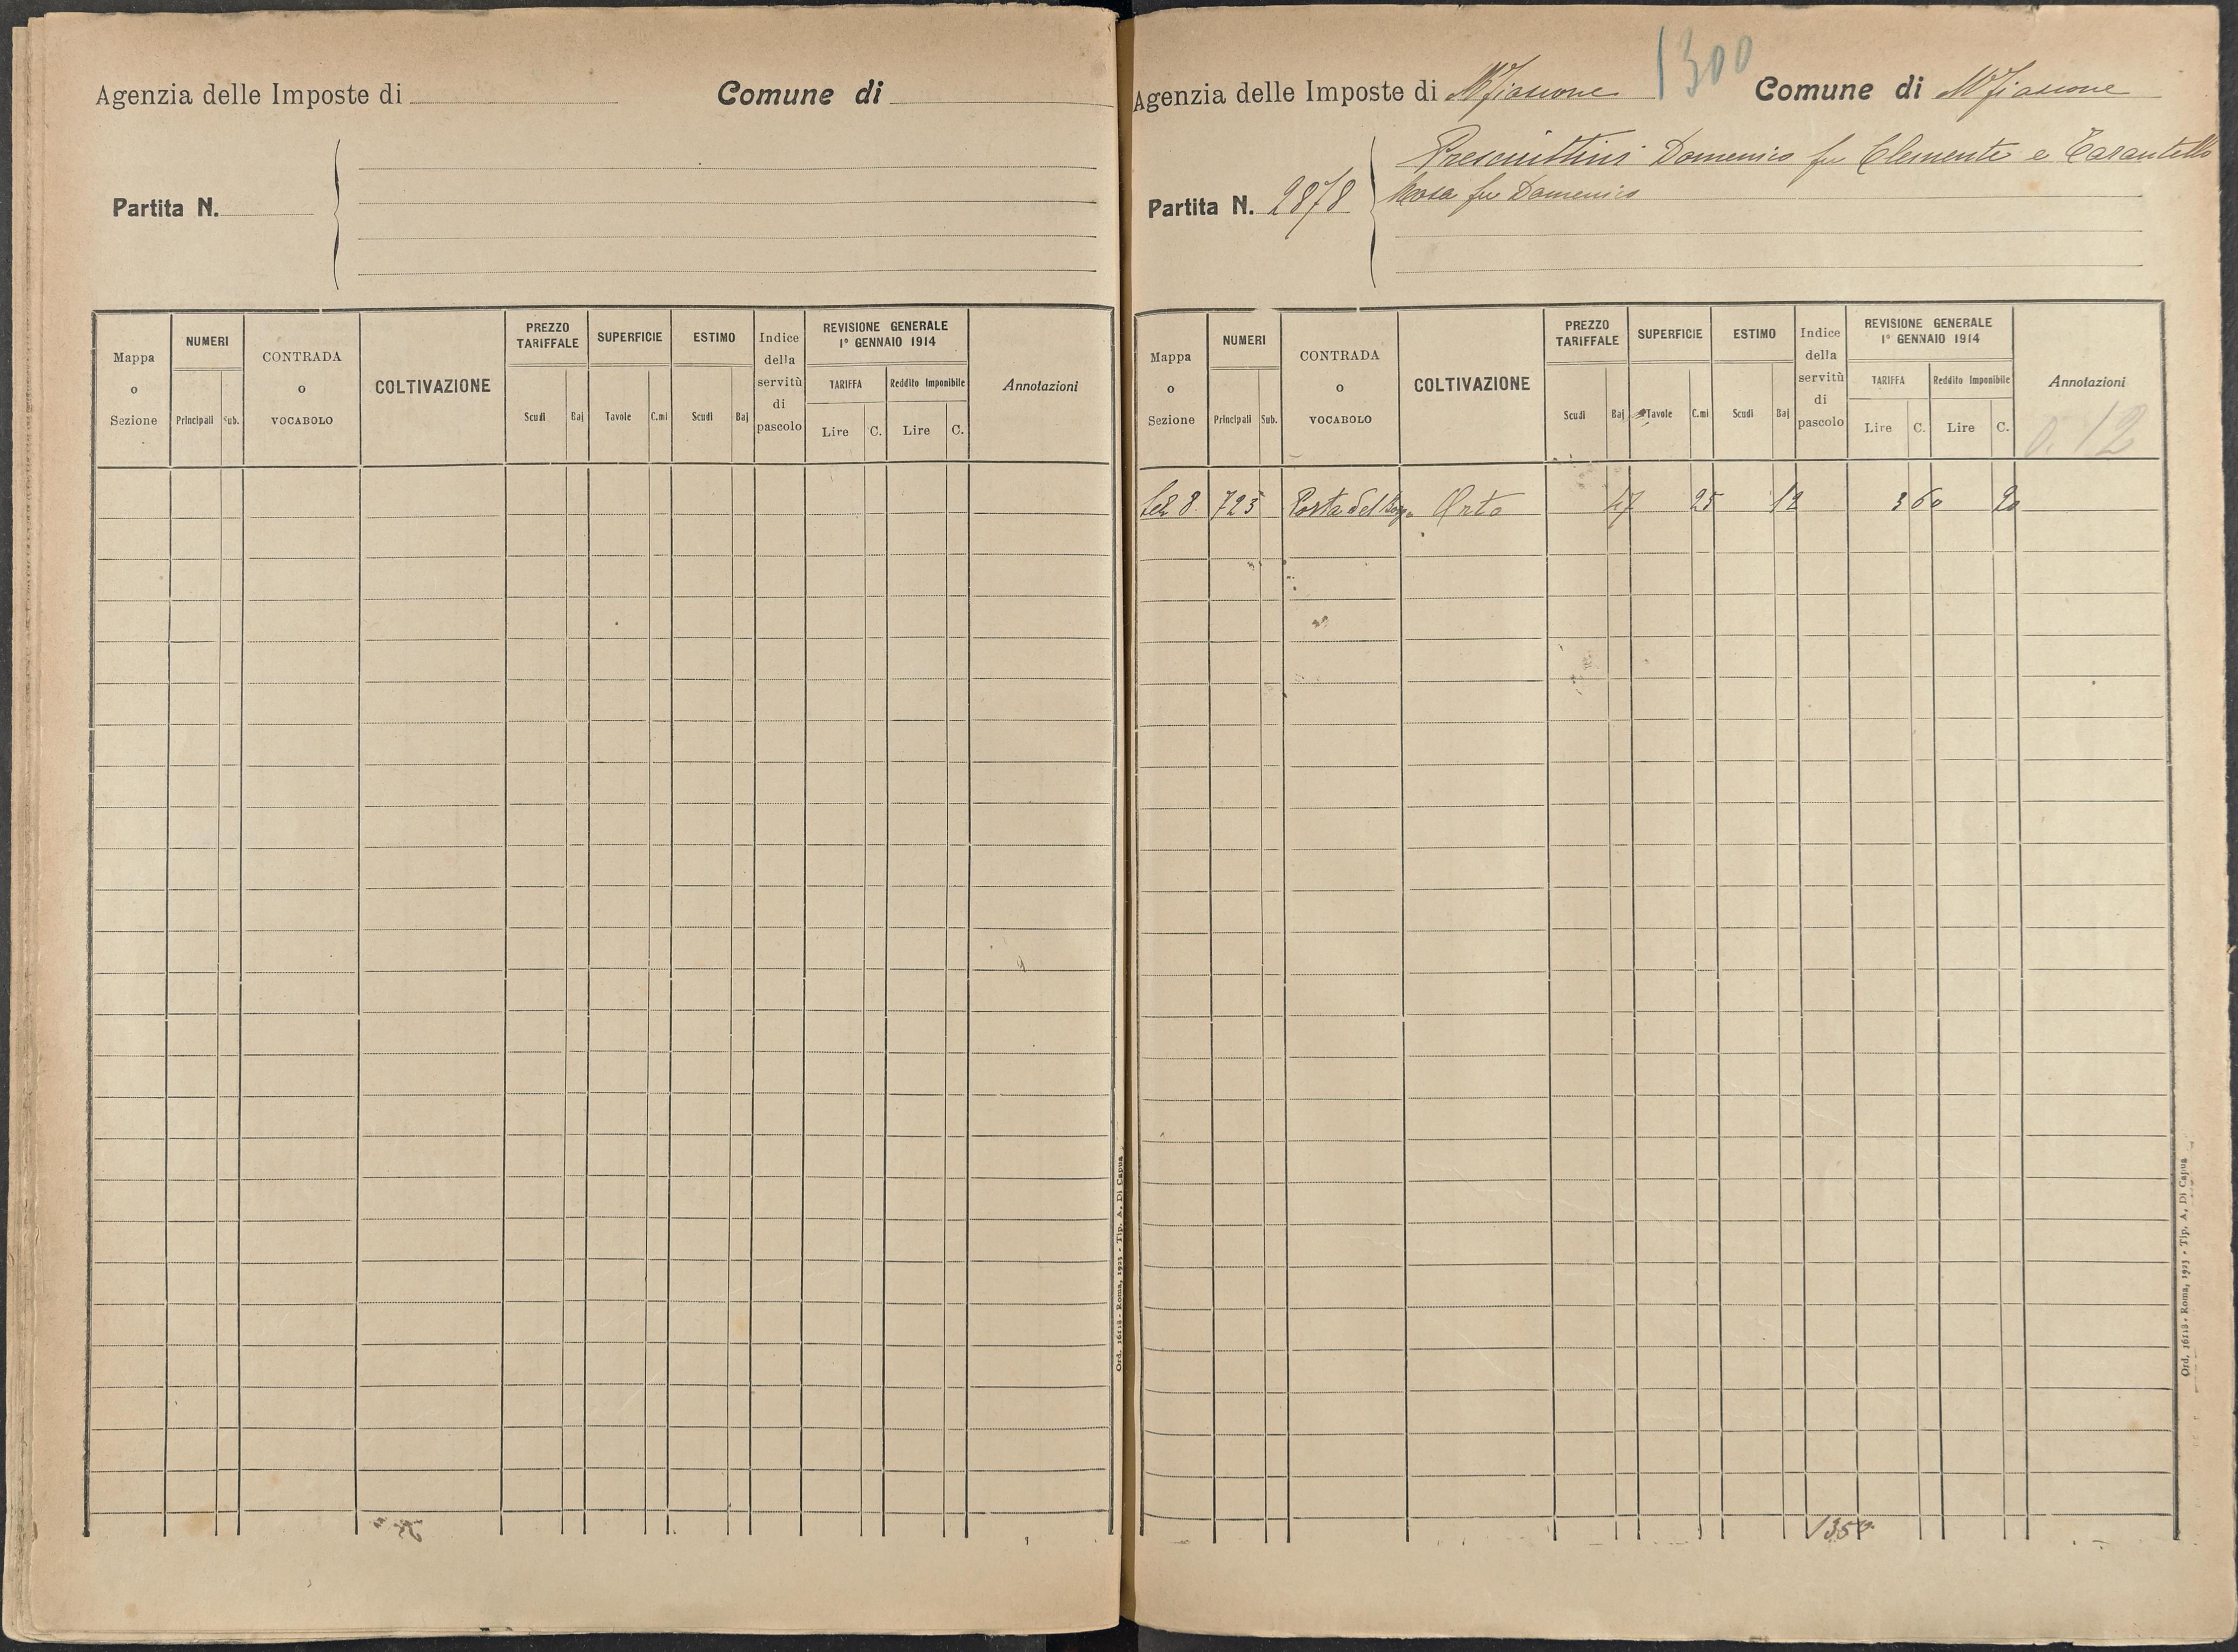 Agenzia delle Imposte di
Comune di
Partita N.
Mappa o Sezione
NUMERI
Principali Sub.
CONTRADA o VOCABOLO
COLTIVAZIONE
PREZZO TARIFFALE
Scudi Baj
SUPERFICIE
Tavole C.mi
ESTIMO
Scudi Baj
Indice della servitù di pascolo
REVISIONE GENERALE
1° GENNAIO 1914
TARIFFA
Lire C.
Reddito Imponibile
Lire C.
Annotazioni
Ord. 16118 - Roma, 1923 - Tip. A. Di Capua
1300
Agenzia delle Imposte di Mfiascone
Comune di Mfiascone
Partita N. 2878
Domenico fu Clemente e
Rosa fu Domenico
Mappa o Sezione
NUMERI
Principali Sub.
CONTRADA o VOCABOLO
COLTIVAZIONE
PREZZO TARIFFALE
Scudi Baj
SUPERFICIE
Tavole C.mi
ESTIMO
Scudi Baj
Indice della servitù di pascolo
REVISIONE GENERALE
1° GENNAIO 1914
TARIFFA
Lire C.
Reddito Imponibile
Lire C.
Annotazioni
0.12
8 723 Orto 47 25 12 360 90
Ord. 16118 - Roma, 1923 - Tip. A. Di Capua